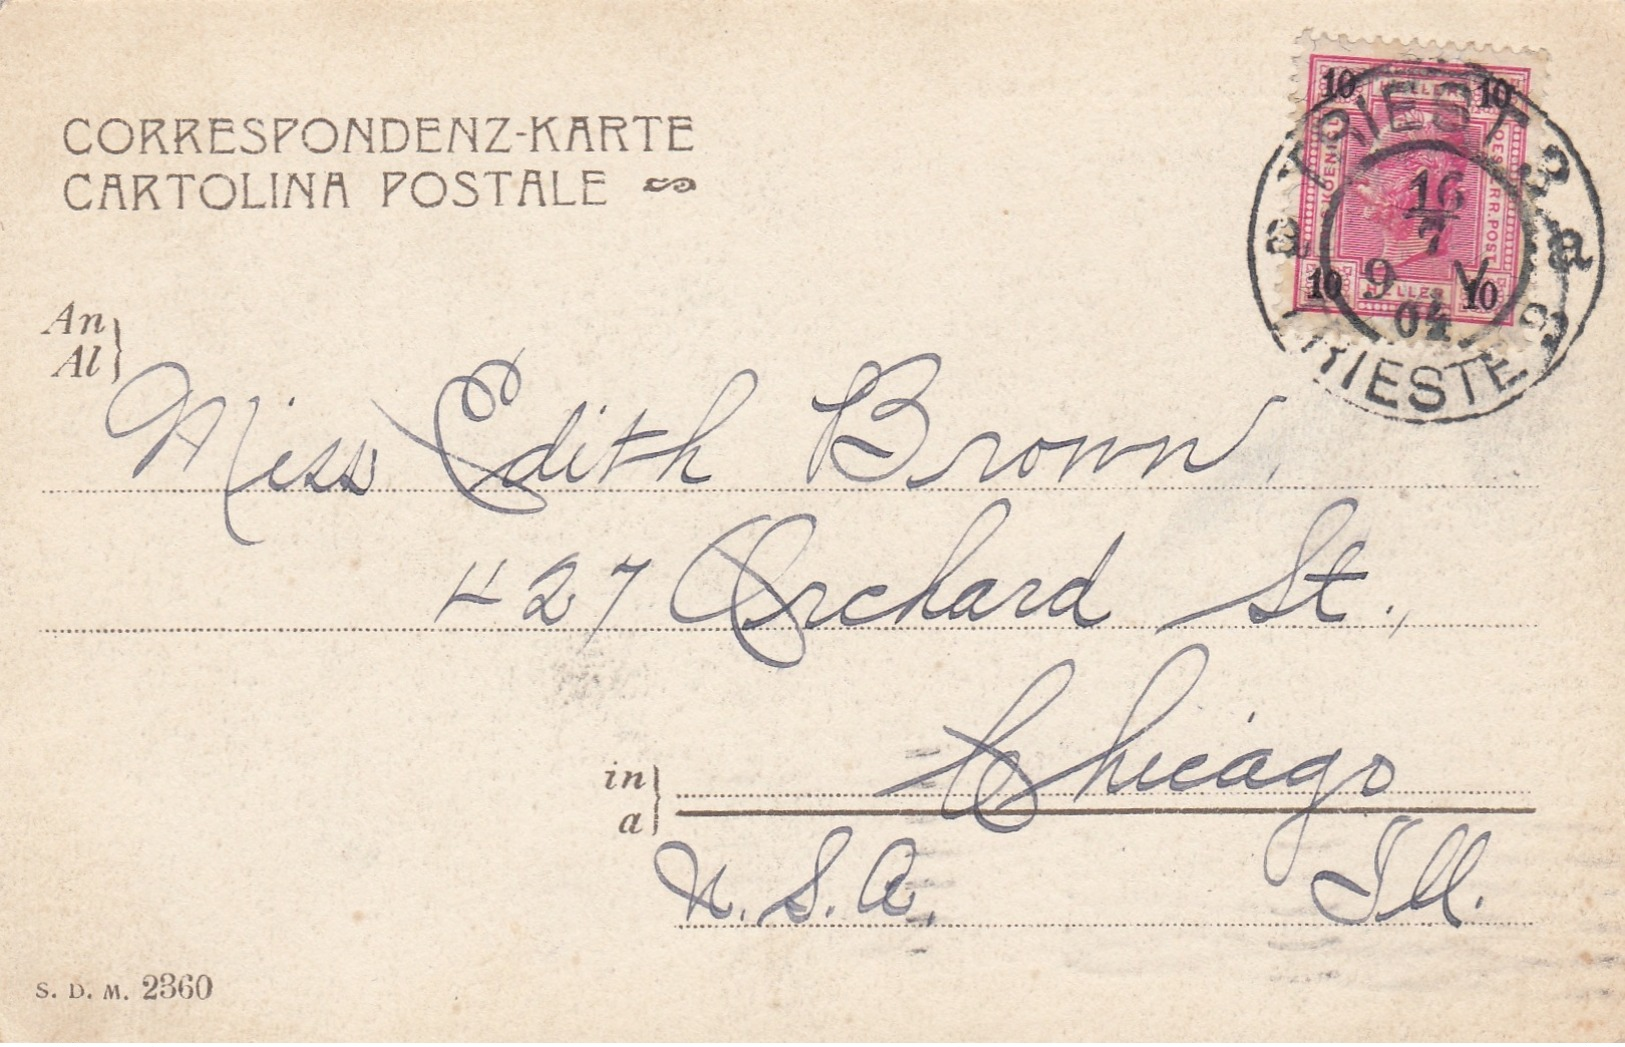 CORRESPONDENZ-KARTE
CARTOLINA POSTALE
10 HELLER 10
KOENIGL
OESTERR. POST
10 HELLER 10
TRIEST 3
a a
16
7
9 V
04
TRIESTE 3
An
Al
Miss Edith Brown,
427 Orchard St.,
in
a
Chicago
U. S. A. Ill.
S. D. M. 2360